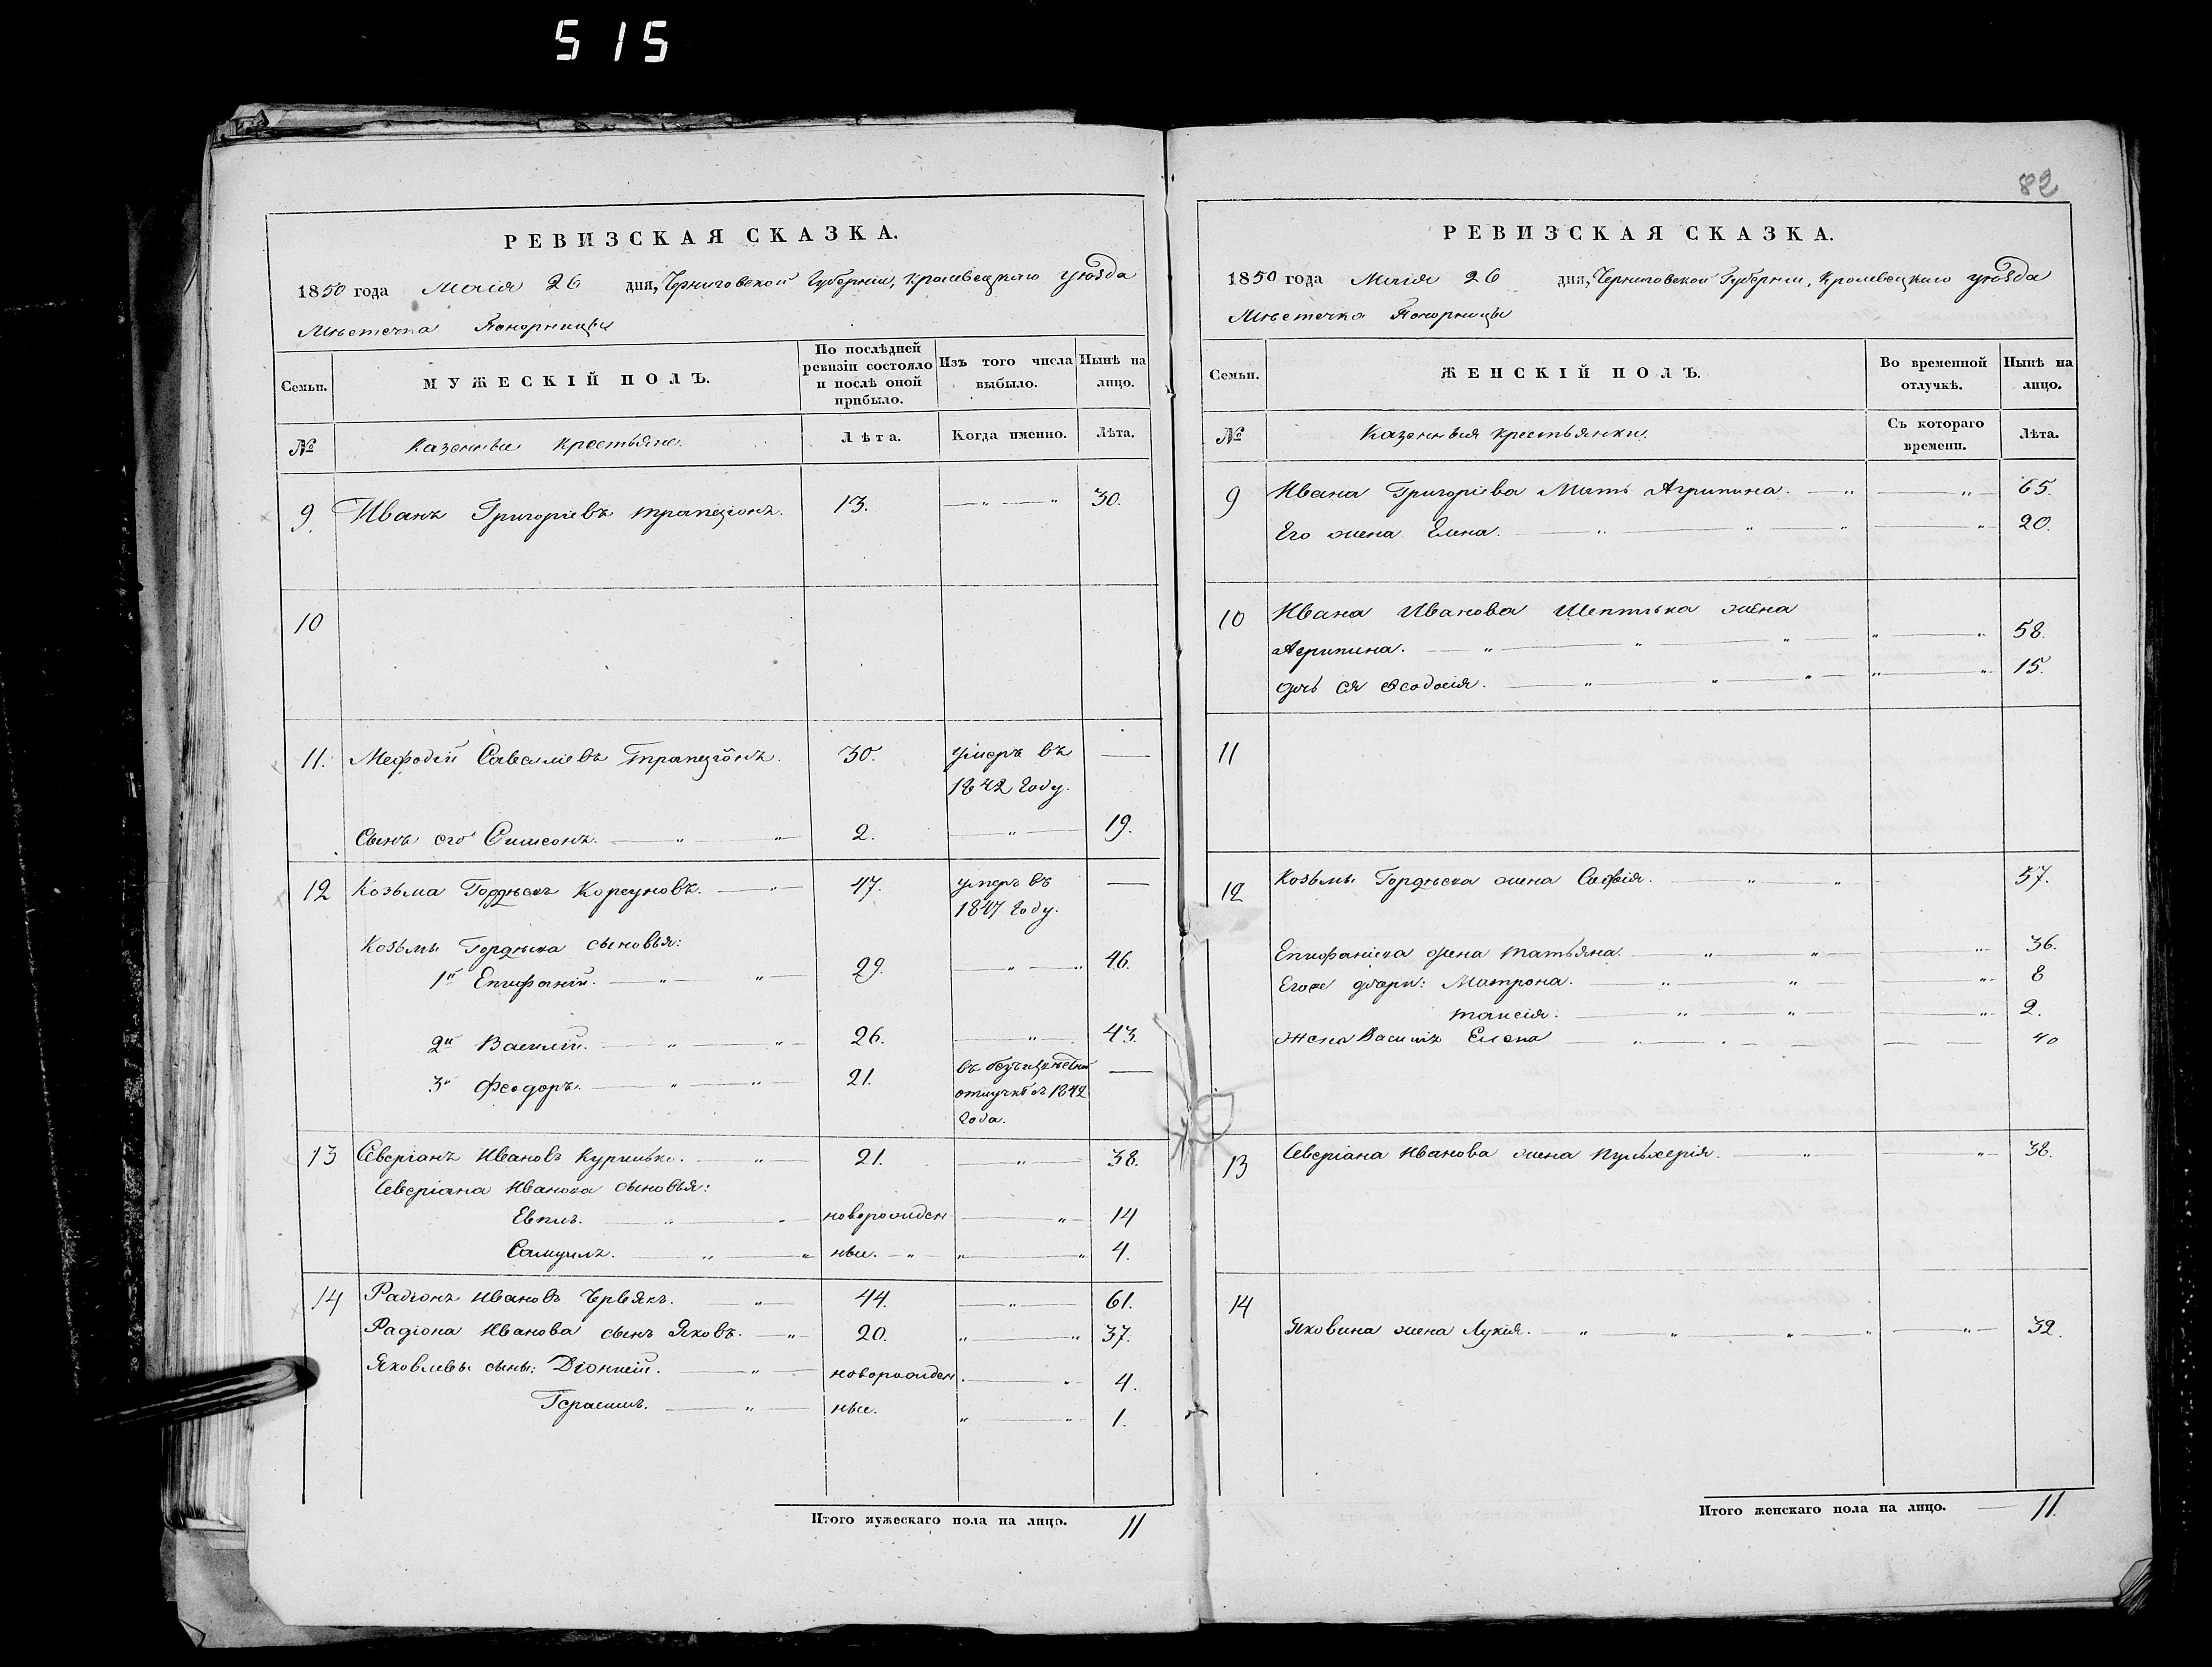 515
РЕВИЗСКАЯ СКАЗКА.
1850 года Маія 26 дня, Черниговской Губерніи, Кролевецкаго уѣзда
Мѣстечка Понорницы
Семьи.
МУЖЕСКІЙ ПОЛЪ.
По послѣдней ревизіи состояло и послѣ оной прибыло.
Изъ того числа выбыло.
Нынѣ на лицо.
№ Казенные крестьяне. Лѣта. Когда именно. Лѣта.
9. Иванъ Григоріевъ Трапезіонъ. 13. — „ — „ 30.
10
11. Мефодій Савеліевъ Трапезіонъ. 30. умеръ въ —
1842 году.
Сынъ его Симеонъ. — „ — „ 2. — „ — 19.
12 Козьма Гордѣевъ Корсуновъ. — „ — 47. умеръ въ —
1847 году.
Козьмы Гордѣева сыновья:
1й Епифаній. — „ — „ — 29. — „ — „ 46.
2й Василій. — „ — „ — 26. — „ — 43.
3й Феодоръ. — „ — „ — 21. въ —
отлучкѣ съ 1842
года.
13 Севѣріанъ Ивановъ Курилько. — „ — 21. — „ — 38.
Севѣріана Иванова сыновья:
Евплъ. — „ — „ новорожден — „ — 14
Самуилъ. — „ — „ ные. — „ — „ — „ 4.
14 Радіонъ Ивановъ Червякъ. — „ — 44. — „ — 61.
Радіона Иванова сынъ Яковъ. — „ — 20. „ — „ 37.
Яковлевы сыны: Діонисій. — „ — новорожден — „ 4.
Герасимъ. — „ — ные. „ — „ 1.
Итого мужескаго пола на лицо. 11
82
РЕВИЗСКАЯ СКАЗКА.
1850 года Маія 26 дня, Черниговской Губерніи, Кролевецкаго уѣзда
Мѣстечка Понорницы
Семьи.
ЖЕНСКІЙ ПОЛЪ.
Во временной отлучкѣ.
Нынѣ на лицо.
№ Казенныя крестьянки. Съ котораго времени. Лѣта.
9 Ивана Григоріева Мать Агрипина. — „ — „ — 65.
Его жена Елена. — „ — „ — „ — „ 20.
10 Ивана Иванова Шептька жена
Агрипина. — „ — „ — „ — „ — „ 58.
дочь ея Феодосія. — „ — „ — „ — „ — „ 15.
11
12 Козьмы Гордѣева жена Софія. „ „ 57.
Епифаніева жена Татьяна. — „ — „ — „ 36.
Егоже дочери: Матрона. — „ — „ — „ 8
Таисія. — „ — „ — „ 2.
Жена Василія Елена — „ — — 40
13 Севѣріана Иванова жена Пульхерія. — „ — „ 38.
14
Яковина жена Лукія. — „ — „ — „ — „ — „ — 32.
Итого женскаго пола на лицо. — 11.